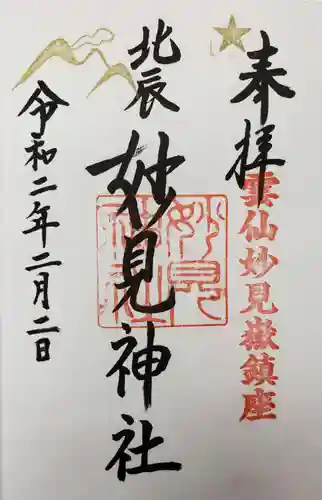 奉拝
雲仙妙見嶽鎮座
北辰
妙見神社
妙見神社
令和二年二月二日